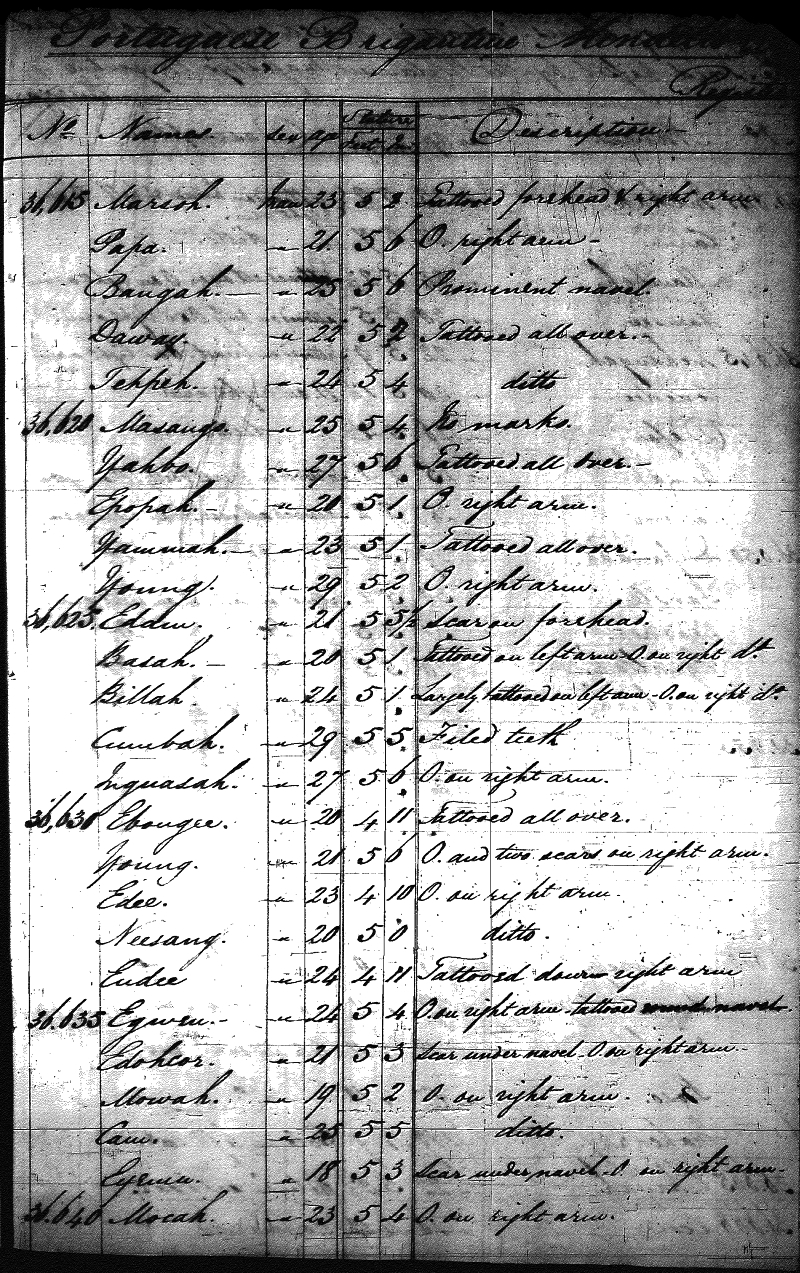 Portuguese Brigantine
Regist
No. Names Sex Age Stature Description
Feet In
36,615 Marsoh. Man 23 5 2 Tattooed forehead & right arm
Papa. " 21 5 6 O. right arm -
Baugah. — " 25 5 6 Prominent navel.
Daway. " 22 5 2 Tattooed all over.
Tehpeh. " 24 5 4 ditto
36,620 Masango. " 25 5 4 No marks.
Yahbo. " 27 5 6 Tattooed all over. -
Epopah. - " 20 5 1 O. right arm.
Yammah. - " 23 5 1 Tattooed all over.
Young. " 29 5 2 O. right arm.
36,625 " 21 5 5½ Scar on forehead.
Basah. - " 20 5 1 Tattooed on left arm - O. on right do.
Billah " 24 5 1 Largely tattooed on left arm - O. on right do.
Cumbah. " 29 5 5 Filed teeth
Inguasah. " 27 5 6 O. on right arm.
36,630 Ebougee. " 20 4 11 Tattooed all over.
Young. " 21 5 6 O. and two scars on right arm.
Edee. " 23 4 10 O. on right arm
Neesang. " 20 5 0 ditto.
Eudee " 24 4 11 Tattooed down right arm
36,635 Egwen. - " 24 5 4 O. on right arm - tattooed navel.
Edohcor. " 21 5 3 Scar under navel - O. on right arm. -
Mowah. " 19 5 2 O. on right arm.
Cam. " 25 5 5 ditto.
" 18 5 3 Scar under navel - O. on right arm.
36,640 Mocah. " 23 5 4 O. on right arm.